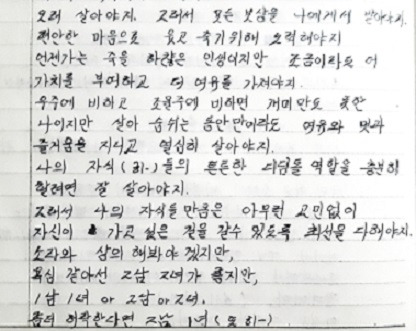 오래 살아야지. 그래서 모든 보상을 나에게서 받아야지.
편안한 마음으로 웃고 죽기위해 노력해야지
언젠가는 죽을 하찮은 인생이지만 조금이라도 더
가치를 부여하고 더 여유를 가져야지.
우주에 비하고 조물주에 비하면 개미만도 못한
나이지만 살아 숨쉬는 동안 만이라도 여유와 멋과
즐거움을 지니고 열심히 살아야지.
나의 자식(히-)들의 튼튼한 디딤돌 역할을 충분히
할려면 잘 살아야지.
그래서 나의 자식들만큼은 아무런 고민없이
자신이 가고 싶은 길을 갈수 있도록 최선을 다해야지.
와 상의 해봐야 겠지만,
욕심 같아선 2남 2녀가 좋지만,
1남 1녀 or 2남 or 2녀.
좀더 허락한다면 2남 1녀(또 히-)